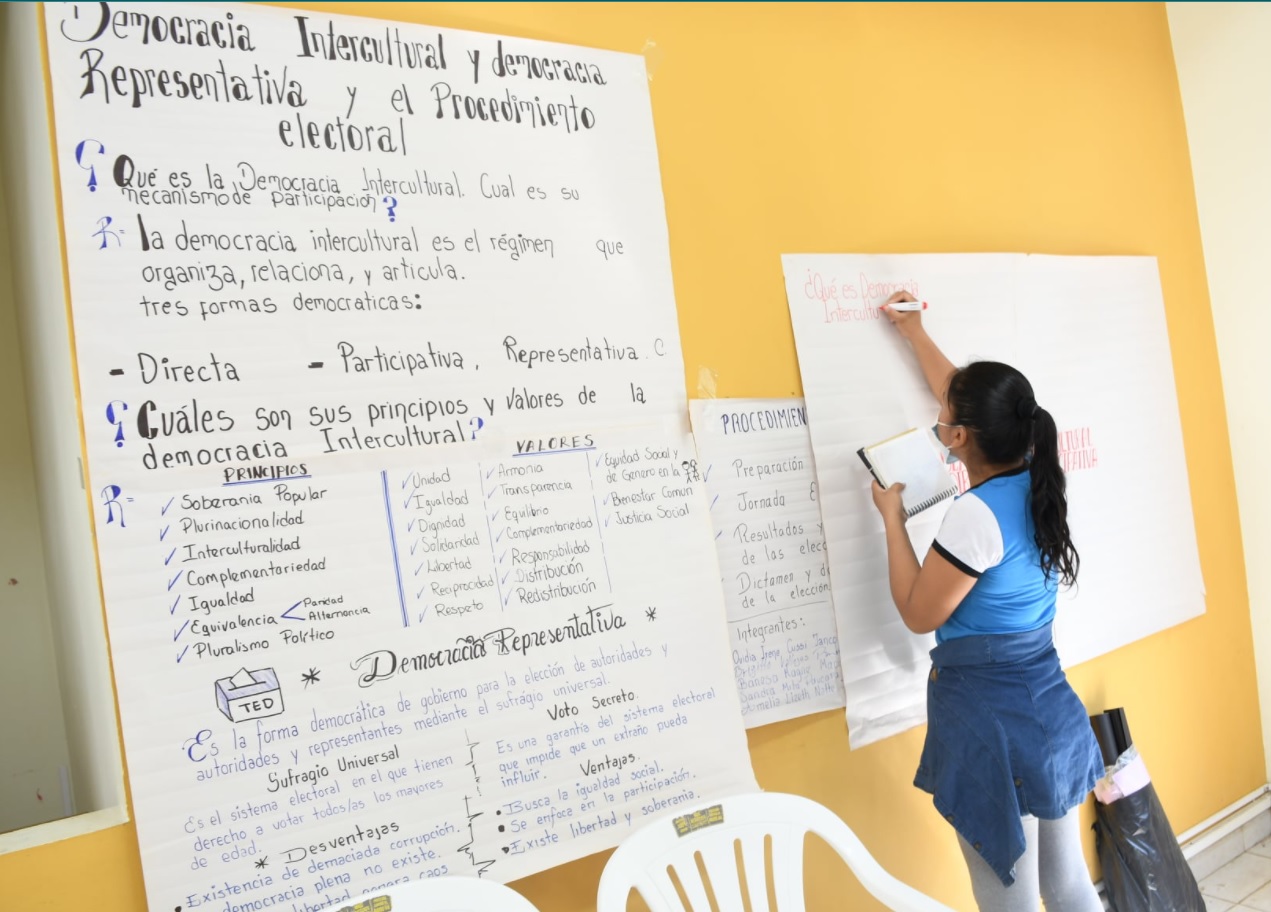 Democracia Intercultural y democracia
Representativa y el Procedimiento
electoral
¿Qué es la Democracia Intercultural. Cual es su
mecanismo de Participación?
R= la democracia intercultural es el régimen que
organiza, relaciona, y articula.
tres formas democraticas:
- Directa - Participativa, Representativa. C
¿Cuáles son sus principios y valores de la
democracia Intercultural?
R=
PRINCIPIOS
✓ Soberanía Popular
✓ Plurinacionalidad
✓ Interculturalidad
✓ Complementariedad
✓ Igualdad
✓ Equivalencia < Paridad
Alternancia
✓ Pluralismo Político
VALORES
✓ Unidad
✓ Igualdad
✓ Dignidad
✓ Solidaridad
✓ Libertad
✓ Reciprocidad
✓ Respeto
✓ Armonia
✓ Transparencia
✓ Equilibrio
✓ Complementariedad
✓ Responsabilidad
✓ Distribución
✓ Redistribución
✓ Equidad Social y
de Género en la
✓ Bienestar Común
✓ Justicia Social
* Democracia Representativa *
TED
Es la forma democrática de gobierno para la elección de autoridades y
autoridades y representantes mediante el sufragio universal.
Sufragio Universal
Es el sistema electoral en el que tienen
derecho a votar todos/as los mayores
de edad.
* Desventajas
• Existencia de demaciada corrupción.
democracia plena no existe.
libertad genera caos
Voto Secreto.
Es una garantía del sistema electoral
que impide que un extraño pueda
influir.
Ventajas.
• Busca la igualdad social.
• Se enfoca en la participación.
• Existe libertad y soberanía.
PROCEDIMIEN
✓ Preparación
✓ Jornada E
✓ Resultados y
de las elecc
✓ Dictamen y d
de la elección
Integrantes:
¿Qué es Democracia
Intercultu